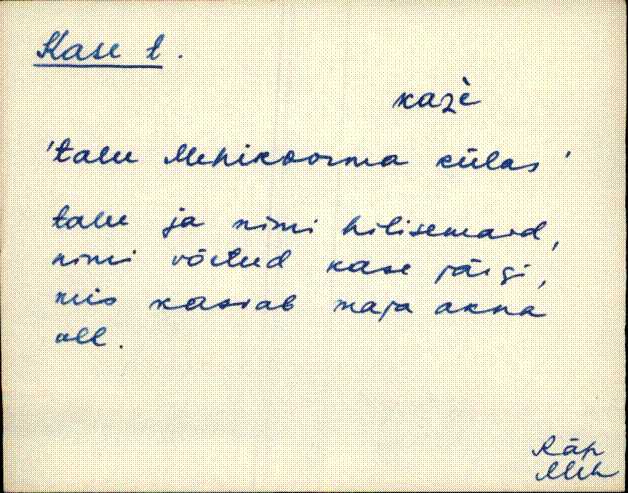 Kase t.
kazè
'talu Mehikoorma külas'
talu ja nimi hilisemaid,
nimi võetud kase järgi,
mis kasvab maja akna
all.
Räp
Meh